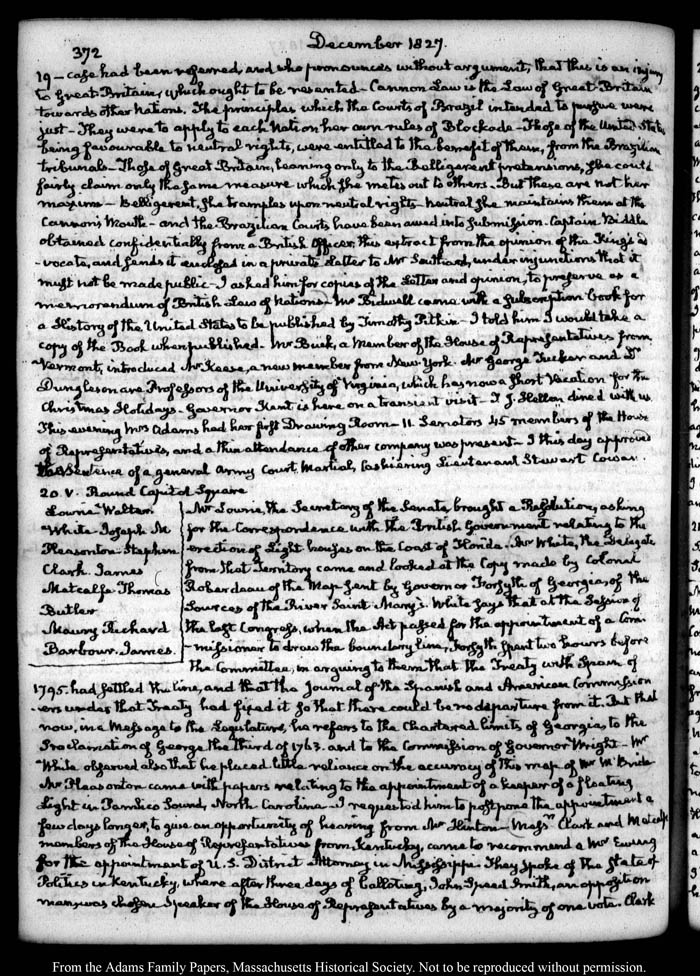 372
December 1827.
19 — case had been referred, and who pronounces without argument, that this is an injury
to Great Britain, which ought to be resented — Cannon Law is the Law of Great Britain
towards other Nations. The principles which the Courts of Brazil intended to pursue were
just — They were to apply to each Nation her own rules of Blockade — Those of the United States
being favourable to neutral rights, were entitled to the benefit of them, from the Brazilian
tribunals — Those of Great Britain, leaning only to the Belligerent pretensions, she could
fairly claim only the same measure which she metes out to others. But these are not her
maxims — Belligerent, she tramples upon neutral rights — neutral she maintains them at the
Cannon's Mouth — and the Brazilian Courts have been awed into submission. Captain Biddle
obtained confidentially from a British Officer, this extract from the opinion of the King's ad
-vocate, and sends it enclosed in a private Letter to Mr Southard, under injunctions that it
must not be made public — I asked him for copies of the Letter and opinion, to preserve as a
memorandum of British Law of Nations — Mr Bidwell came with a subscription book for
a History of the United States to be published by Timothy Pitkin — I told him I would take a
copy of the Book when published — Mr Buck, a Member of the House of Representatives from
Vermont, introduced Mr Keese, a new member from New York. Mr George Tucker and Dr
Dungleson are Professors of the University of Virginia, which has now a short Vacation for the
Christmas Holidays — Governor Kent is here on a transient visit — T. J. Hellen dined with us
This evening Mrs Adams had her first Drawing Room — 11 Senators 45 members of the House
of Representatives, and a thin attendance of other company was present — I this day approved
the Sentence of a general Army Court Martial, Cashiering Lieutenant Stewart Cowan.
20. V. Round Capitol Square
Lowrie Walter
White Joseph M
Pleasonton Stephen
Clark. James
Metcalfe Thomas
Butler
Maury Richard
Barbour. James.
Mr Lowrie, the Secretary of the Senate, brought a Resolution, asking
for the Correspondence with the British Government relating to the
erection of Light houses on the Coast of Florida. Mr White, the Delegate
from that Territory came and looked at the Copy made by Colonel
Roberdeau of the Map sent by Governor Forsyth of Georgia, of the
Sources of the River Saint Mary's. White says that at the Session of
the last Congress, when the Act passed for the appointment of a Com
-missioner to draw the boundary line, Forsyth spent two hours before
the Committee, in arguing to them that the Treaty with Spain of
1795. had settled the line, and that the Journal of the Spanish and American Commission
-ers under that Treaty had fixed it so that there could be no departure from it. But that
now, in a Message to the Legislature, he refers to the Chartered limits of Georgia, to the
Proclamation of George the third of 1763. and to the Commission of Governor Wright — Mr
White observed also that he placed little reliance on the accuracy of this map of Mr McBride
Mr Pleasonton came with papers relating to the appointment of a keeper of a floating
Light in Pamlico Sound, North Carolina — I requested him to postpone the appointment a
few days longer, to give an opportunity of hearing from Mr Hinton — Messrs Clark and Metcalfe
members of the House of Representatives from Kentucky, came to recommend a Mr Ewing
for the appointment of U.S. District Attorney in Mississippi. They spoke of the State of
Politics in Kentucky, where after three days of balloting, John Speed Smith, an opposition
man, was chosen Speaker of the House of Representatives by a majority of one vote. Clark
From the Adams Family Papers, Massachusetts Historical Society. Not to be reproduced without permission.